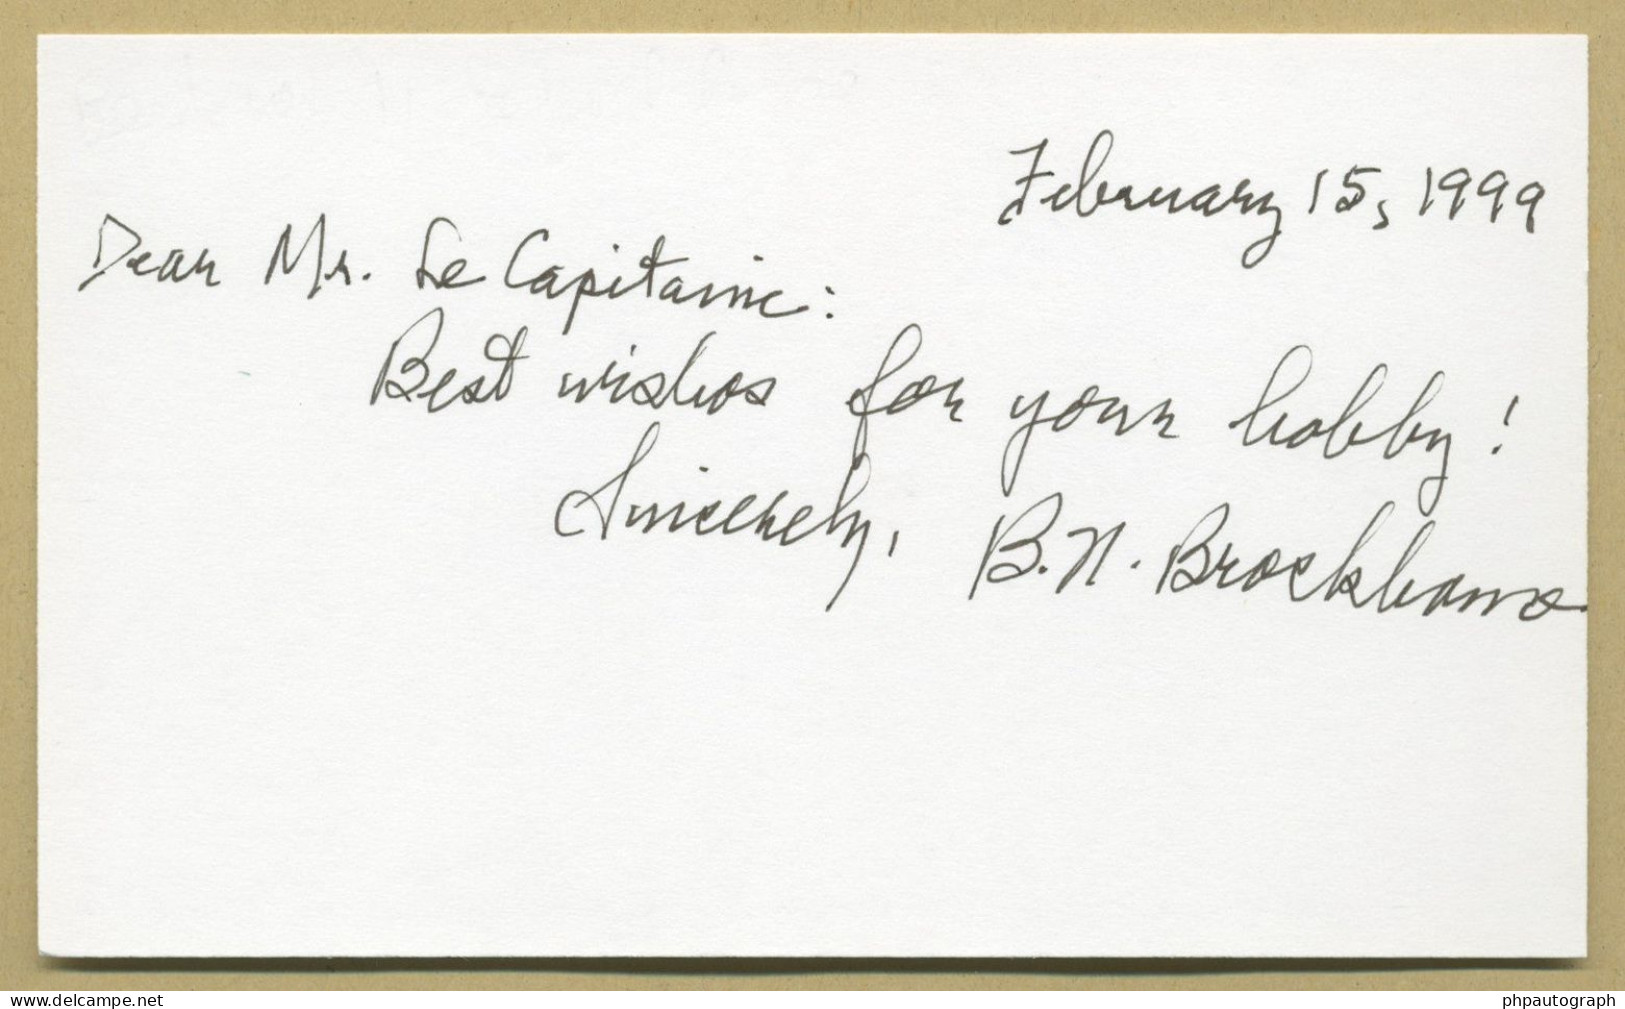 February 15, 1999
Dear Mr. Le Capitaine:
Best wishes for your hobby!
Sincerely, B.N. Brockhouse
www.delcampe.net
phpautograph